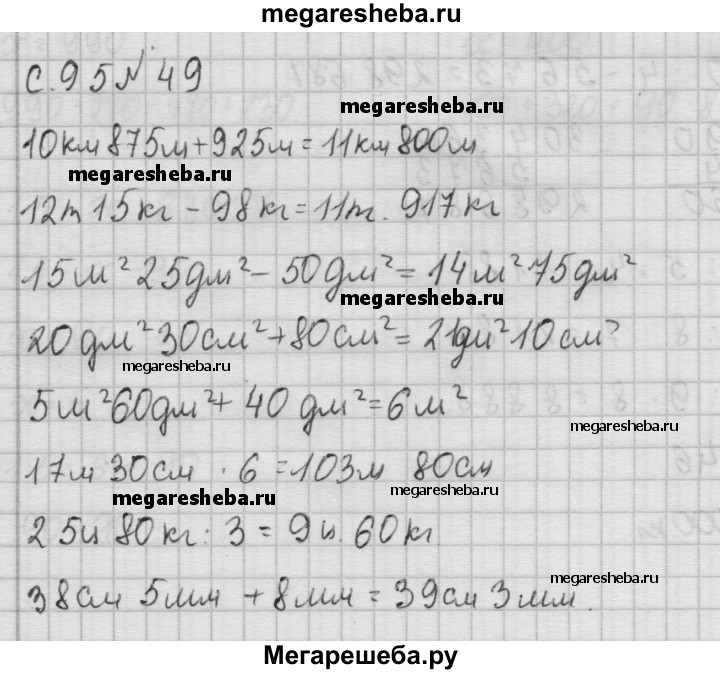 megaresheba.ru
с. 95 № 49
megaresheba.ru
10км 875м + 925м = 11км 800м.
megaresheba.ru
12т 15кг - 98кг = 11т. 917кг
15м² 25дм² - 50дм² = 14м² 75дм²
megaresheba.ru
20дм² 30см² + 80см² = 21дм² 10см²
megaresheba.ru
5м² 60дм² + 40дм² = 6м²
megaresheba.ru
17м 30см · 6 = 103м 80см
megaresheba.ru
megaresheba.ru
25ц 80кг : 3 = 9ц. 60кг.
megaresheba.ru
38см 5мм + 8мм = 39см 3мм.
Мегарешеба.ру